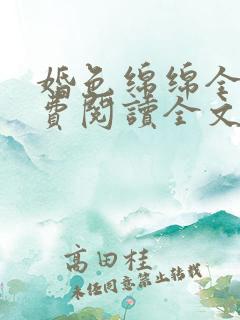 婚色綿綿全
費閱讀全文
高田桂
未经同意禁止转载